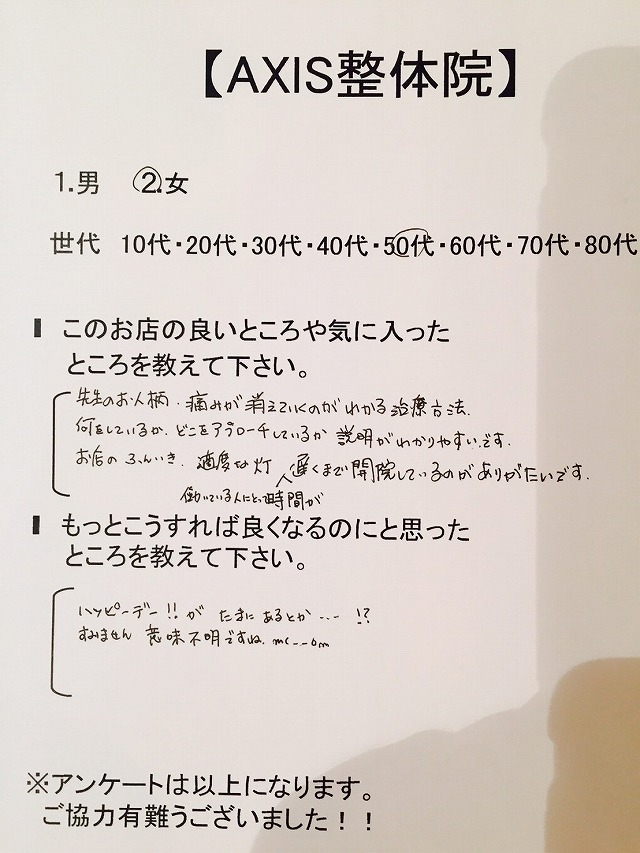 【AXIS整体院】
1.男 2.女
世代 10代・20代・30代・40代・50代・60代・70代・80代
このお店の良いところや気に入った
ところを教えて下さい。
先生のお人柄、痛みが消えていくのがわかる治療方法、
何をしているか、どこをアプローチしているか 説明がわかりやすいです。
お店の ふんいき、適度な灯 遅くまで開院しているのがありがたいです。
働いている人にとって時間が
もっとこうすれば良くなるのにと思った
ところを教えて下さい。
ハッピーデー!!が たまにあるとか… !?
すみません 意味不明ですね. m(__)m
※アンケートは以上になります。
ご協力有難うございました!!